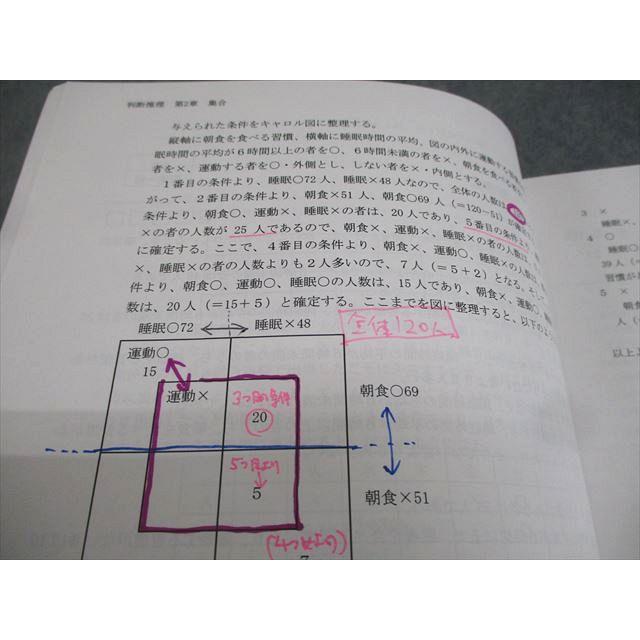 判断推理 第2章 集合
与えられた条件をキャロル図に整理する。
縦軸に朝食を食べる習慣、横軸に睡眠時間の平均、図の内外に運動する習慣
眠時間の平均が6時間以上の者を○、6時間未満の者を×、朝食を食べる者を
者を×、運動する者を○・外側とし、しない者を×・内側とする。
1番目の条件より、睡眠○72人、睡眠×48人なので、全体の人数は
がって、2番目の条件より、朝食×51人、朝食○69人(=120-51)
条件より、朝食○、運動×、睡眠×の者は、20人であり、5番目の条件より
×の者の人数が25人であるので、朝食×、運動×、睡眠×の者の人数は
に確定する。ここで、4番目の条件より、朝食×、運動○、睡眠×の人数は
×、睡眠×の者の人数よりも2人多いので、7人(=5+2)となる。そし
件より、朝食○、運動○、睡眠○の人数は、15人であり、朝食×、運動○、睡眠
数は、20人(=15+5)と確定する。ここまでを図に整理すると、以下のよう
睡眠○72 睡眠×48
全体120人
運動○
15
運動×
3つ目の条件
20
朝食○69
5つ目より
5
朝食×51
(4つ目より)
7
3 ×
睡眠×、
4 ○
39人(
習慣が
5 ×
人(
以上よ